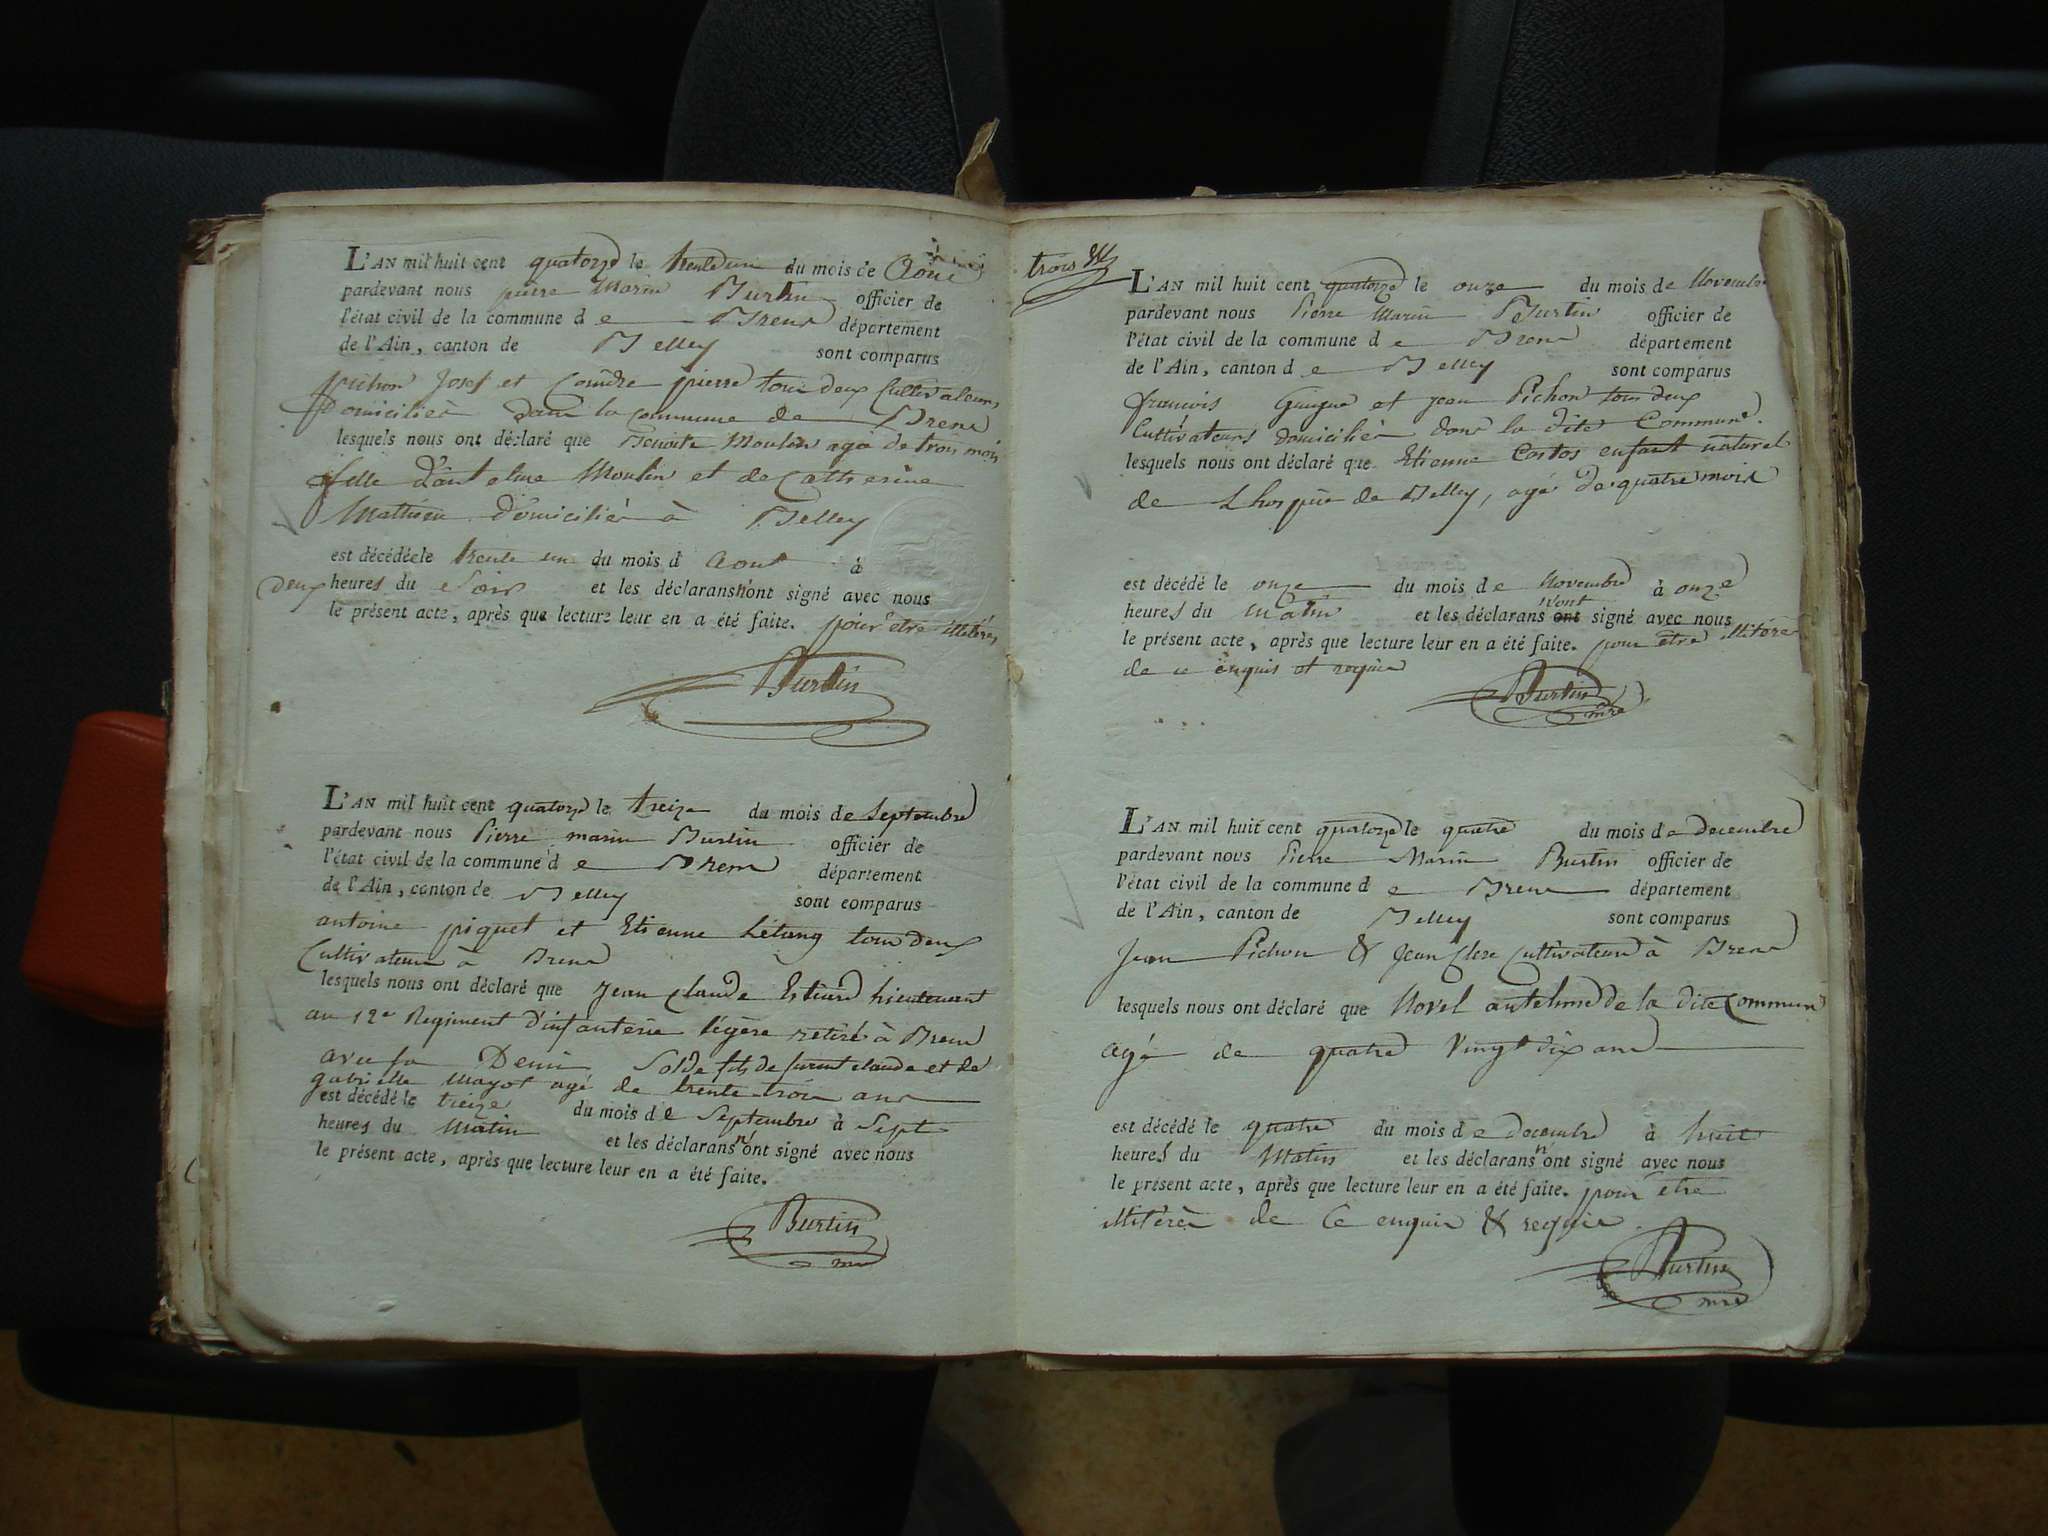 L'AN mil huit cent quatorze le trente un du mois de Aout
pardevant nous pierre Marin Burtin officier de
l'état civil de la commune de Brens département
de l'Ain, canton de Belley sont comparus
pichon Josef et Coindre pierre tous deux Cultivateurs
Domiciliés dans la commune de Brens
lesquels nous ont déclaré que Benoite Moulin agé de trois mois
fille d'antelme Moulin et de Catherine
Mathieu domiciliés à Belley
est décédée le trente un du mois d Aout à
deux heures du Soir et les déclarans n'ont signé avec nous
le présent acte, après que lecture leur en a été faite. pour être illitérés
Burtin
L'AN mil huit cent quatorze le treize du mois de Septembre
pardevant nous Pierre marin Burtin officier de
l'état civil de la commune de Brens département
de l'Ain, canton de Belley sont comparus
antoine piquet et Etienne Létang tous deux
Cultivateurs à Brens
lesquels nous ont déclaré que Jean Claude lieutenant
au 12e Regiment d'infanterie légère retiré à Brens
avec sa Demi Solde fils de claude et de
gabrielle Mayot agé de trente trois ans
est décédé le treize du mois de Septembre à Sept
heures du Matin et les déclarans n'ont signé avec nous
le présent acte, après que lecture leur en a été faite.
Burtin
mre
trois
L'AN mil huit cent quatorze le onze du mois de Novembre
pardevant nous Pierre Marin Burtin officier de
l'état civil de la commune de Brens département
de l'Ain, canton de Belley sont comparus
francois Guigue et jean Pichon tous deux
Cultivateurs domiciliés dans la dite Commune.
lesquels nous ont déclaré que Etienne Costos enfant naturel
de Lhospice de Belley, agé de quatre mois
est décédé le onze du mois de Novembre à onze
heures du Matin et les déclarans n'ont ont signé avec nous
le présent acte, après que lecture leur en a été faite. pour être illitéré
de ce enquis et requis
Burtin
mre
L'AN mil huit cent quatorze le quatre du mois de decembre
pardevant nous Pierre Marin Burtin officier de
l'état civil de la commune de Brens département
de l'Ain, canton de Belley sont comparus
Jean Pichon & Jean Clerc Cultivateurs à Brens
lesquels nous ont déclaré que Novel antelme de la dite Commune
agé de quatre Vingt dix ans
est décédé le quatre du mois de decembre à huit
heures du Matin et les déclarans n'ont signé avec nous
le présent acte, après que lecture leur en a été faite. pour être
illitérés de ce enquis & requis
Burtin
mre